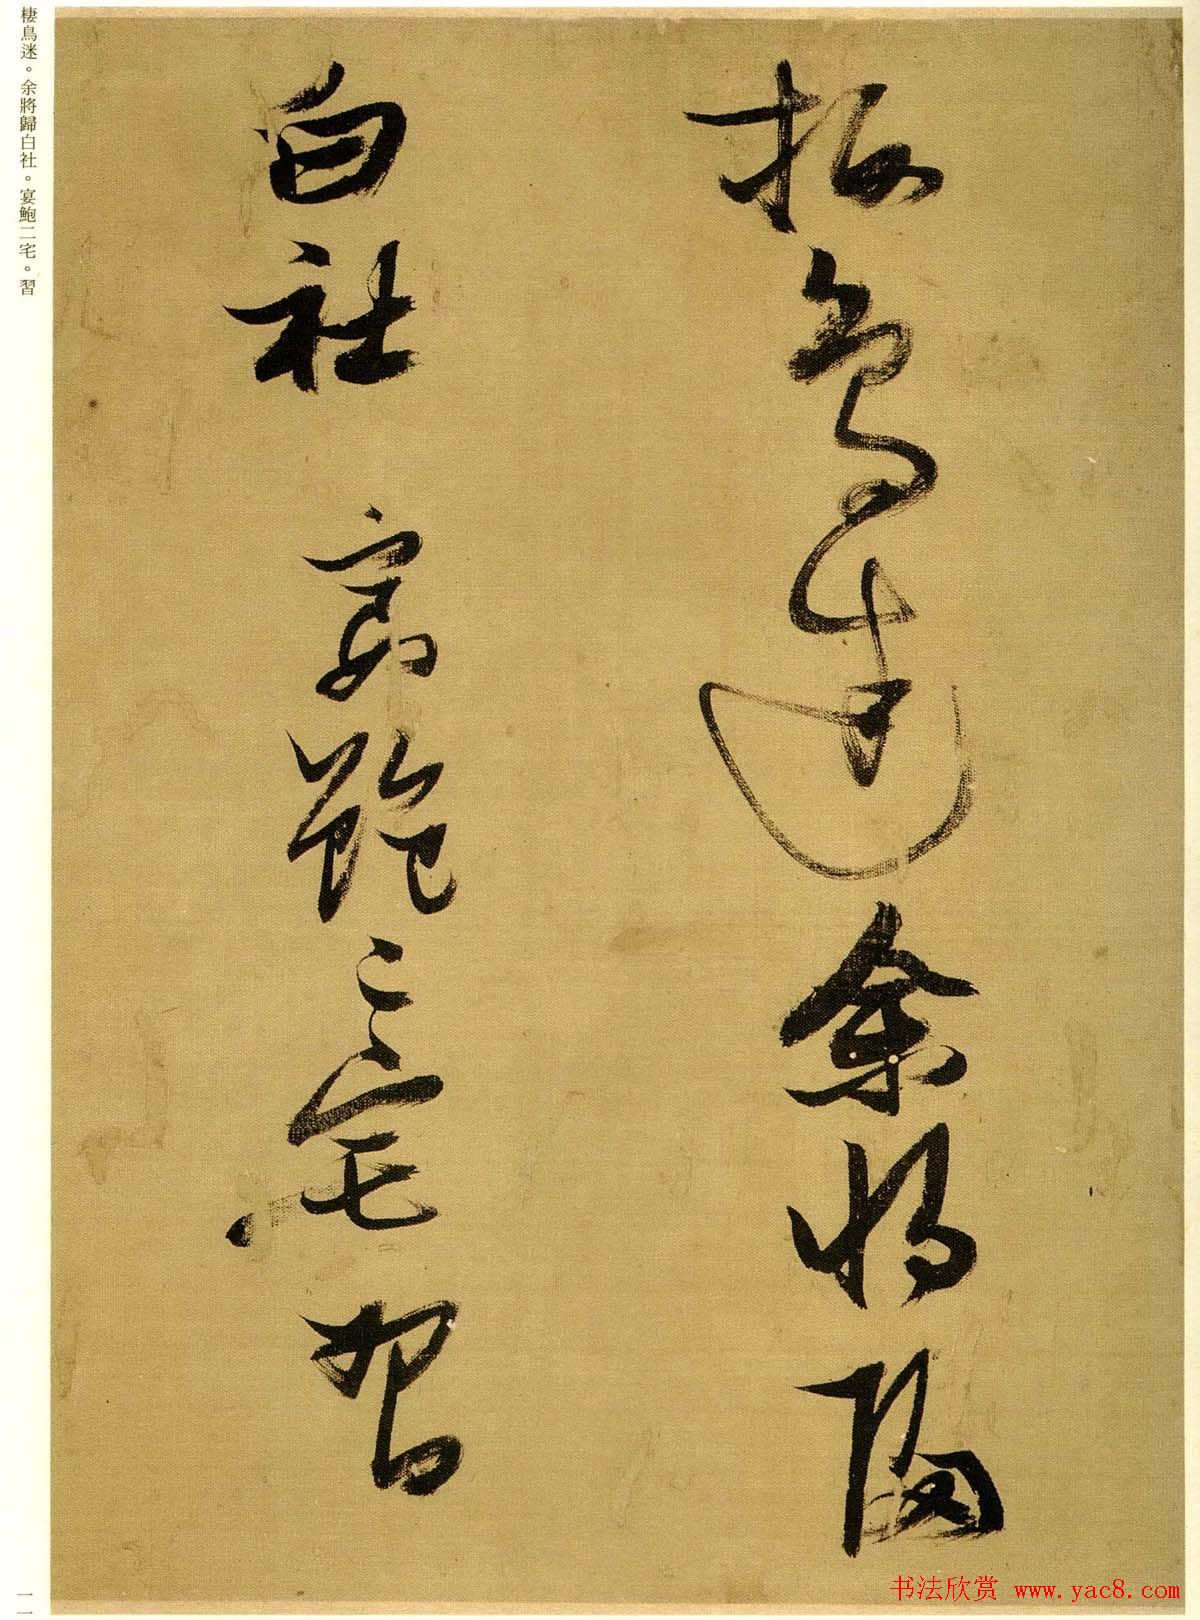 栖鳥迷余將歸
白社宴鮑二宅習
棲鳥迷。余將歸白社。宴鮑二宅。習
一一
书法欣赏 www.yac8.com